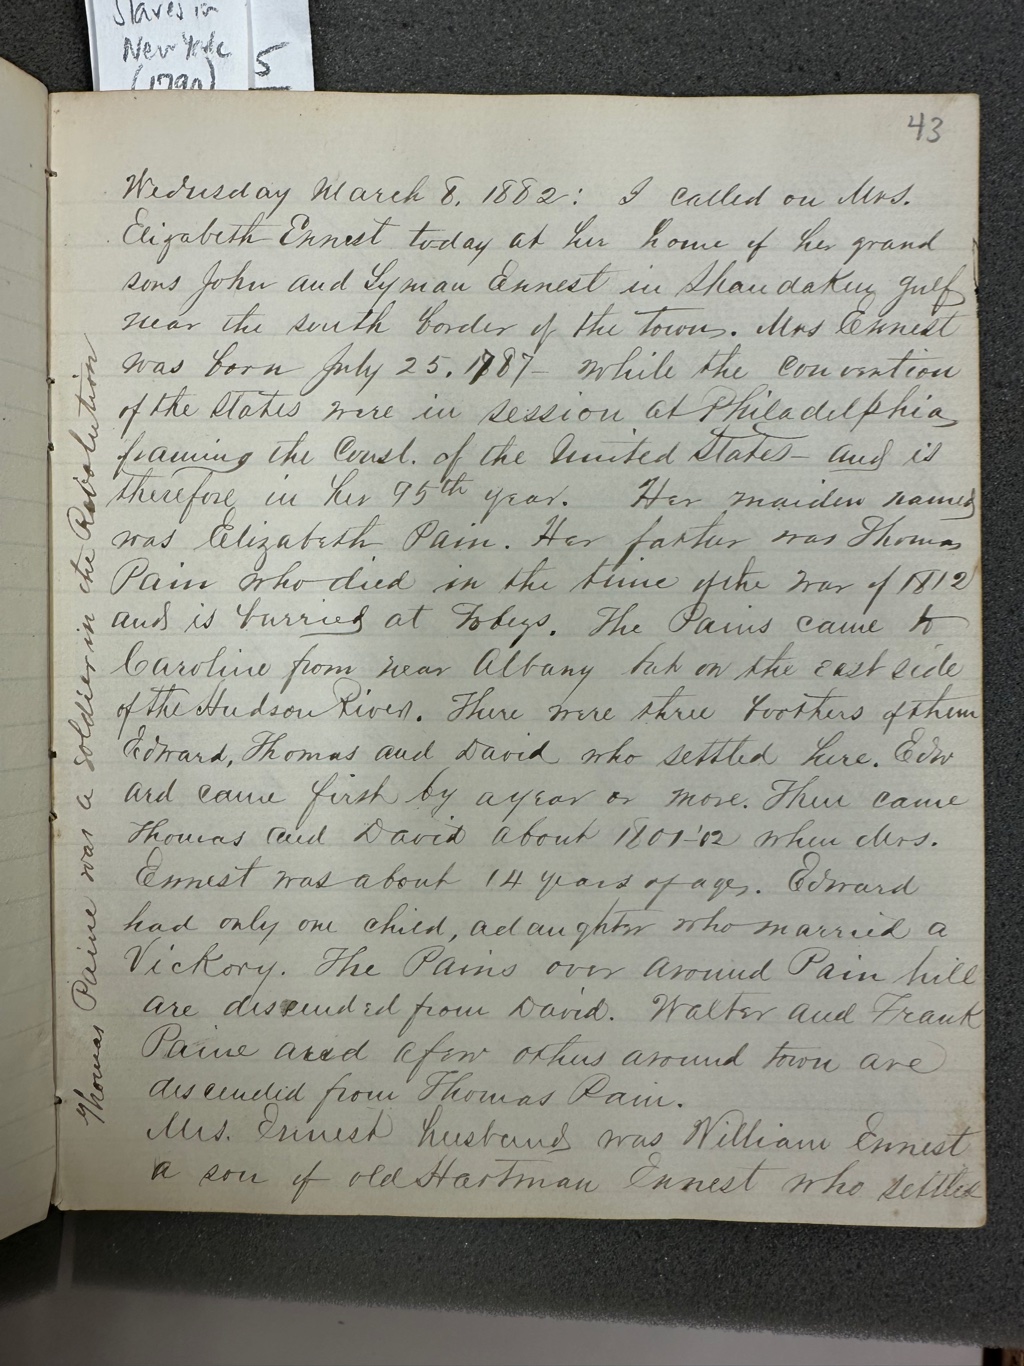 Slaves in
New York
(1790)
5
43
Wednesday March 8. 1882: I called on Mrs.
Elizabeth Ennest today at her home of her grand
sons John and Lyman Ennest in Shandaken gulf
near the south border of the town. Mrs Ennest
was born July 25. 1787 – while the convention
of the States were in session at Philadelphia
framing the Const. of the United States – and is
therefore in her 95th year. Her maiden name
was Elizabeth Pain. Her father was Thomas
Pain who died in the time of the war of 1812
and is burried at Tobeys. The Pains came to
Caroline from near Albany but on the east side
of the Hudson River. There were three brothers of them
Edward, Thomas and David who settled here. Edw
ard came first by a year or more. Then came
Thomas and David about 1801-'02 when Mrs.
Ennest was about 14 years of age. Edward
had only one child, a daughter who married a
Vickory. The Pains over around Pain hill
are descended from David. Walter and Frank
Paine and a few others around town are
descended from Thomas Pain.
Mrs. Ennest husband was William Ennest
a son of old Hartman Ennest who settled
Thomas Paine was a soldier in the Revolution